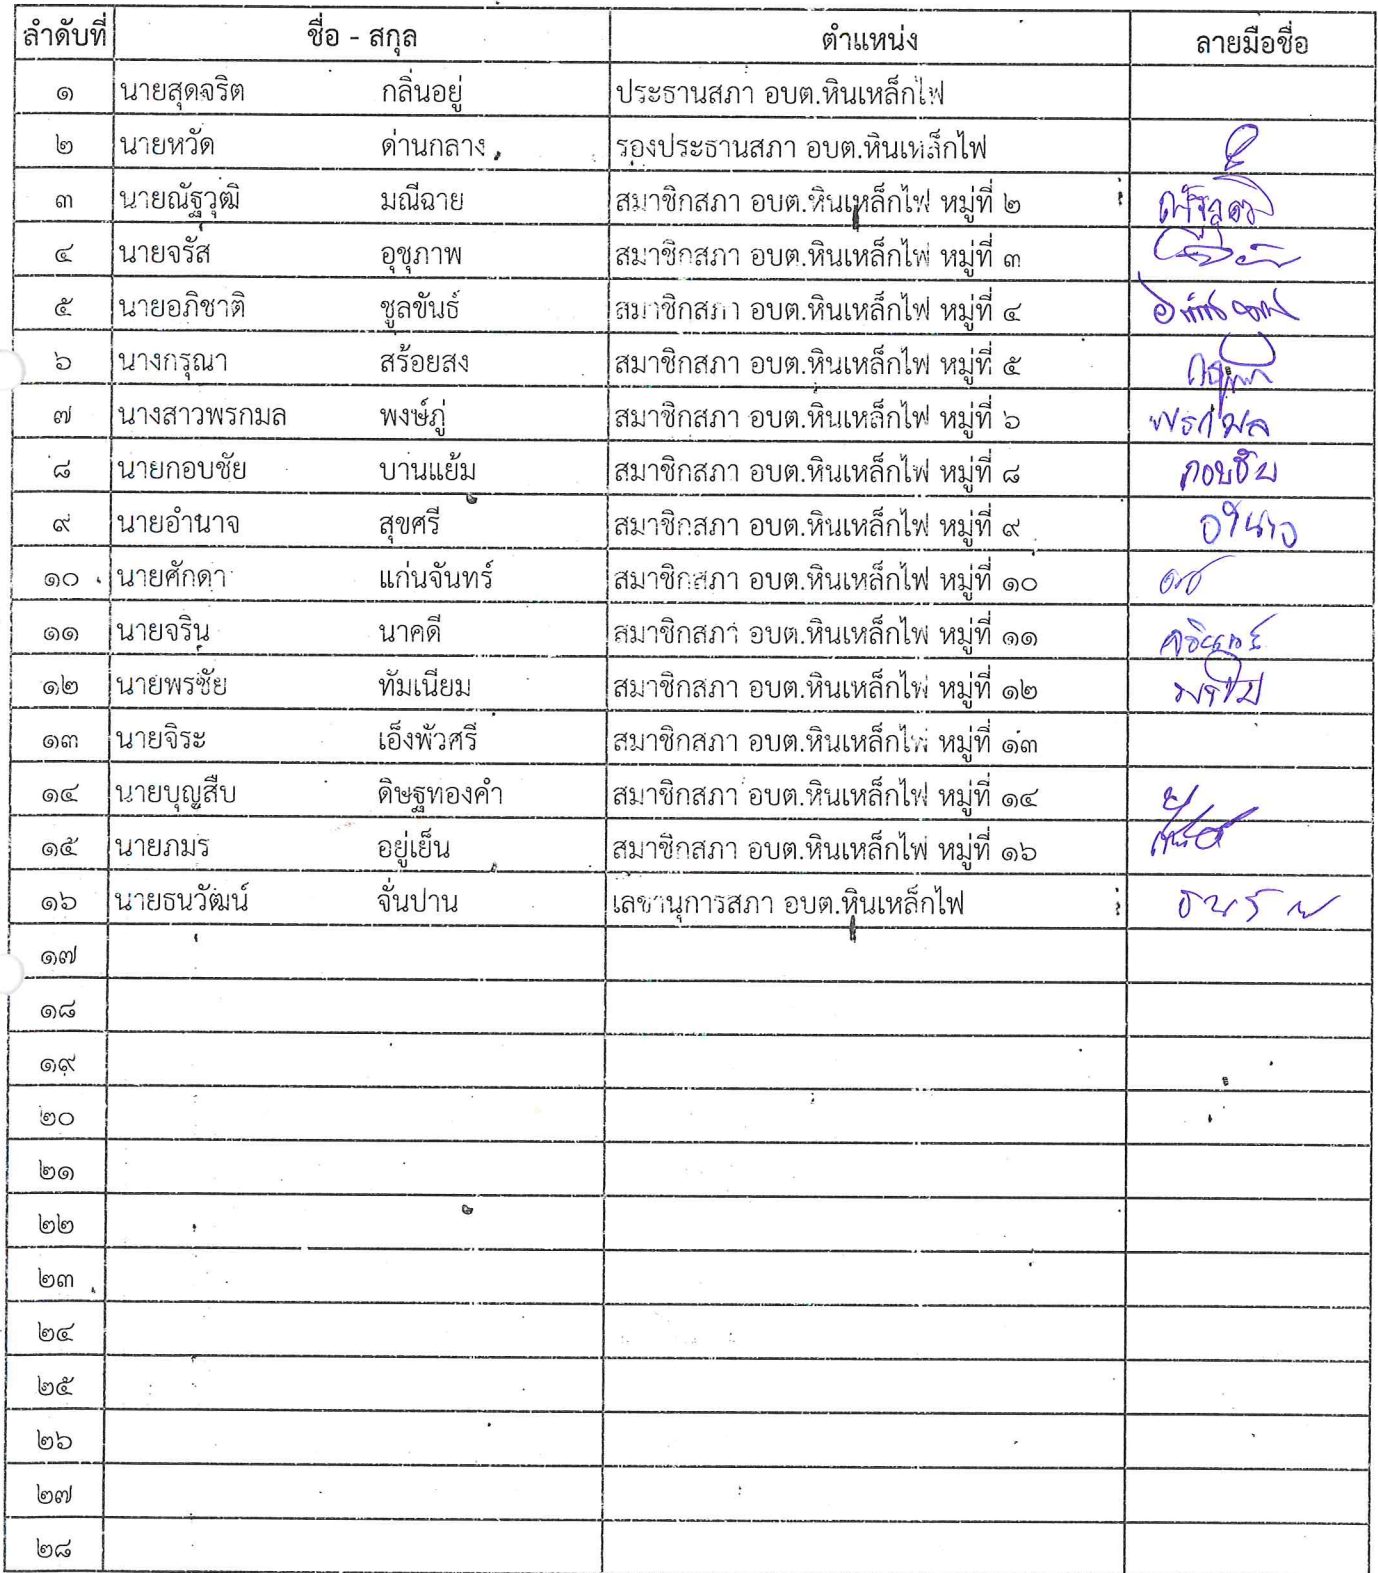 ลำดับที่ ชื่อ - สกุล ตำแหน่ง ลายมือชื่อ
๑ นายสุดจริต กลิ่นอยู่ ประธานสภา อบต.หินเหล็กไฟ
๒ นายหวัด ด่านกลาง รองประธานสภา อบต.หินเหล็กไฟ
๓ นายณัฐวุฒิ มณีฉาย สมาชิกสภา อบต.หินเหล็กไฟ หมู่ที่ ๒
๔ นายจรัส อุชุภาพ สมาชิกสภา อบต.หินเหล็กไฟ หมู่ที่ ๓
๕ นายอภิชาติ ชูลขันธ์ สมาชิกสภา อบต.หินเหล็กไฟ หมู่ที่ ๔
๖ นางกรุณา สร้อยสง สมาชิกสภา อบต.หินเหล็กไฟ หมู่ที่ ๕
๗ นางสาวพรกมล พงษ์ภู่ สมาชิกสภา อบต.หินเหล็กไฟ หมู่ที่ ๖ พรกมล
๘ นายกอบชัย บานแย้ม สมาชิกสภา อบต.หินเหล็กไฟ หมู่ที่ ๘ กอบชัย
๙ นายอำนาจ สุขศรี สมาชิกสภา อบต.หินเหล็กไฟ หมู่ที่ ๙ อำนาจ
๑๐ นายศักดา แก่นจันทร์ สมาชิกสภา อบต.หินเหล็กไฟ หมู่ที่ ๑๐
๑๑ นายจริน นาคดี สมาชิกสภา อบต.หินเหล็กไฟ หมู่ที่ ๑๑
๑๒ นายพรชัย ทัมเนียม สมาชิกสภา อบต.หินเหล็กไฟ หมู่ที่ ๑๒
๑๓ นายจิระ เอ็งพัวศรี สมาชิกสภา อบต.หินเหล็กไฟ หมู่ที่ ๑๓
๑๔ นายบุญสืบ ดิษฐทองคำ สมาชิกสภา อบต.หินเหล็กไฟ หมู่ที่ ๑๔
๑๕ นายภมร อยู่เย็น สมาชิกสภา อบต.หินเหล็กไฟ หมู่ที่ ๑๖
๑๖ นายธนวัฒน์ จั่นปาน เลขานุการสภา อบต.หินเหล็กไฟ
๑๗
๑๘
๑๙
๒๐
๒๑
๒๒
๒๓
๒๔
๒๕
๒๖
๒๗
๒๘